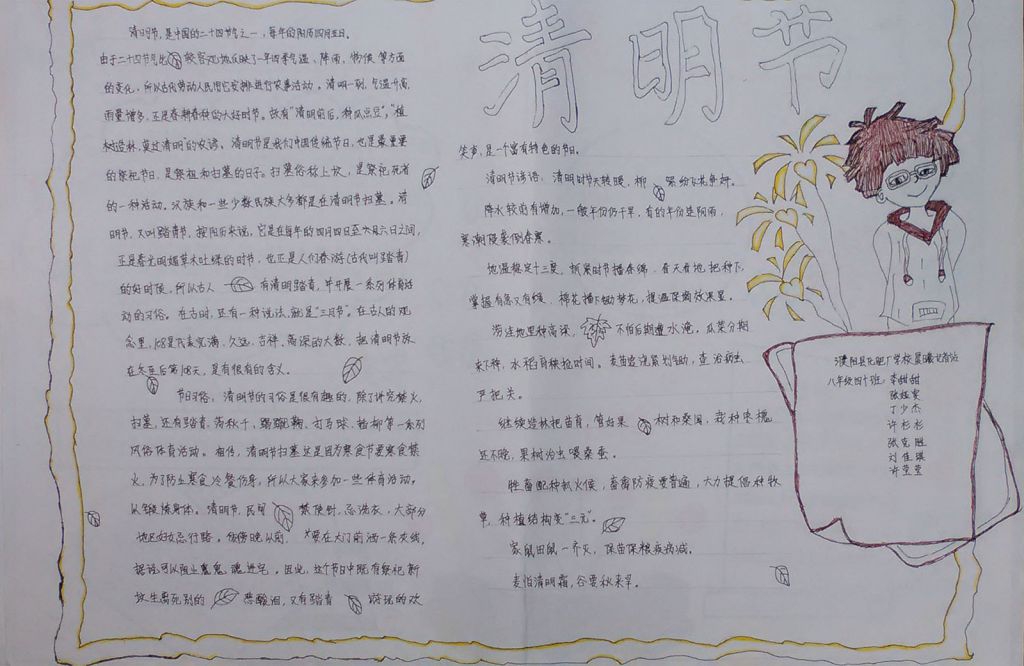 清明节
清明节，是中国的二十四节气之一，每年的阳历四月五日。
由于二十四节气比较客观地反映了一年四季气温、降雨、物候等方面
的变化，所以古代劳动人民用它安排进行农事活动。清明一到，气温升高，
雨量增多，正是春耕春种的大好时节。故有"清明前后，种瓜点豆"，"植
树造林，莫过清明"的农谚。清明节是我们中国传统节日，也是最重要
的祭祀节日，是祭祖和扫墓的日子。扫墓俗称上坟，是祭祀死者
的一种活动。汉族和一些少数民族大多都是在清明节扫墓。清
明节，又叫踏青节，按阳历来说，它是在每年的四月四日至六月六日之间，
正是春光明媚草木吐绿的时节，也正是人们春游（古代叫踏青）
的好时候，所以古人有清明踏青，并开展一系列体育活
动的习俗。在古时，还有一种说法，就是"三月节"。在古人的观
念里，108是代表完满、久远、吉祥、高深的大数，把清明节放
在冬至后第108天，是有很有的含义。
节日习俗：清明节的习俗是很有趣的，除了讲究禁火，
扫墓，还有踏青、荡秋千、蹴鞠、打马球、插柳等一系列
风俗体育活动。相传，清明节扫墓这是因为寒食节要寒食禁
火，为了防止寒食冷餐伤身，所以大家来参加一些体育活动，
以锻炼身体。清明节，民间禁使针，忌洗衣，大部分
地区妇女忌行路。傍晚以前，要在大门前洒一条灰线，
据说可以阻止鬼魂进宅。因此，这个节日中既有祭祀新
坟生离死别的悲酸泪，又有踏青游玩的欢
笑声，是一个富有特色的节日。
清明节谚语：清明时节天转暖，柳絮纷飞花争妍。
降水较前有增加，一般年份仍干旱，有的年份连阴雨，
寒潮侵袭倒春寒。
地温稳定十三度，抓紧时节播春棉，看天看地把种下，
掌握有急又有缓，棉花播下锄梦花，提温保墒效果显。
涝洼地里种高粱，不怕后期遭水淹，瓜菜分期
来下种，水稻育秧抢时间。麦苗追浇紧划锄，查治病虫
严把关。
继续造林把苗育，管好果树和桑园，栽种枣槐
还不晚，果树治虫喂桑蚕。
牲畜配种抓火候，畜禽防疫要普遍，大力提倡种牧
草，种植结构变"三元"。
家鼠田鼠一齐灭，保苗保粮疾病减。
麦怕清明霜，谷要秋来旱。
濮阳县化肥厂学校晨曦记者站
八年级四十班：李甜甜
丁少杰
许杉杉
张克旭
刘佳琪
许莹莹